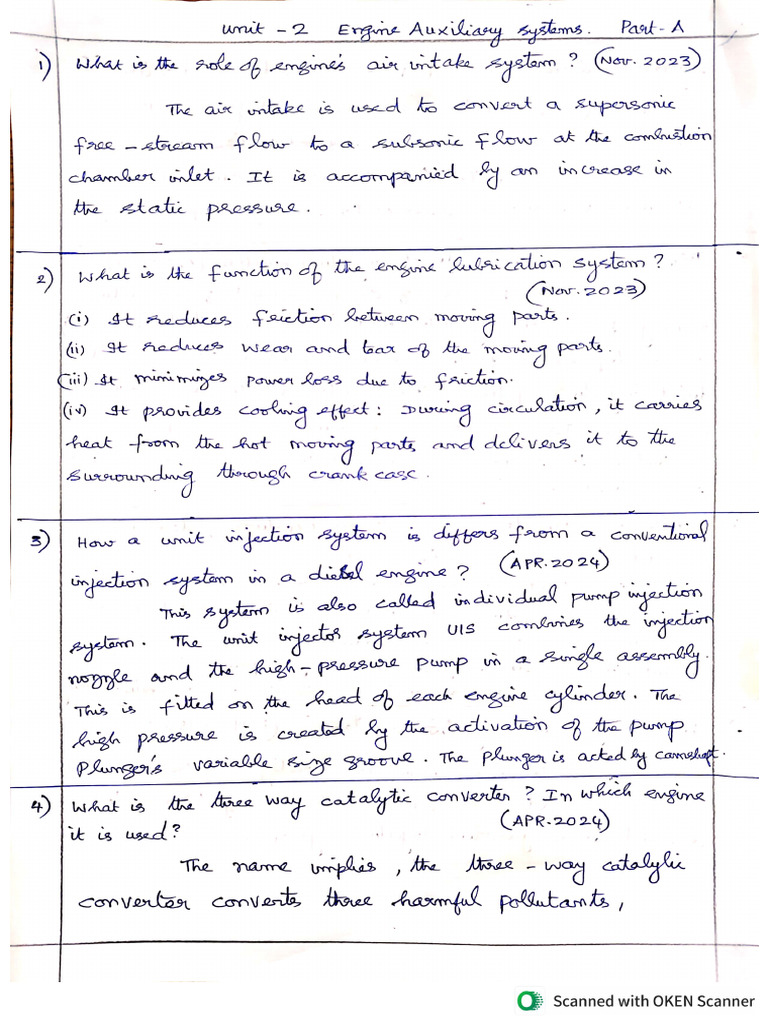 Unit - 2 Engine Auxiliary Systems. Part-A
1) What is the role of engine's air intake system? (Nov. 2023)
The air intake is used to convert a supersonic
free - stream flow to a subsonic flow at the combustion
chamber inlet. It is accompanied by an increase in
the static pressure.
2) What is the function of the engine lubrication system?
(Nov. 2023)
(i) It reduces friction between moving parts.
(ii) It reduces wear and tear of the moving parts.
(iii) It minimizes power loss due to friction.
(iv) It provides cooling effect: During circulation, it carries
heat from the hot moving parts and delivers it to the
surrounding through crank case.
3) How a unit injection system is differs from a conventional
injection system in a diesel engine? (APR. 2024)
This system is also called individual pump injection
system. The unit injector system UIS combines the injection
nozzle and the high - pressure pump in a single assembly.
This is fitted on the head of each engine cylinder. The
high pressure is created by the activation of the pump
Plunger's variable size groove. The plunger is acted by camshaft.
4) What is the three way catalytic converter? In which engine
it is used? (APR. 2024)
The name implies, the three - way catalytic
converter converts three harmful pollutants,
Scanned with OKEN Scanner